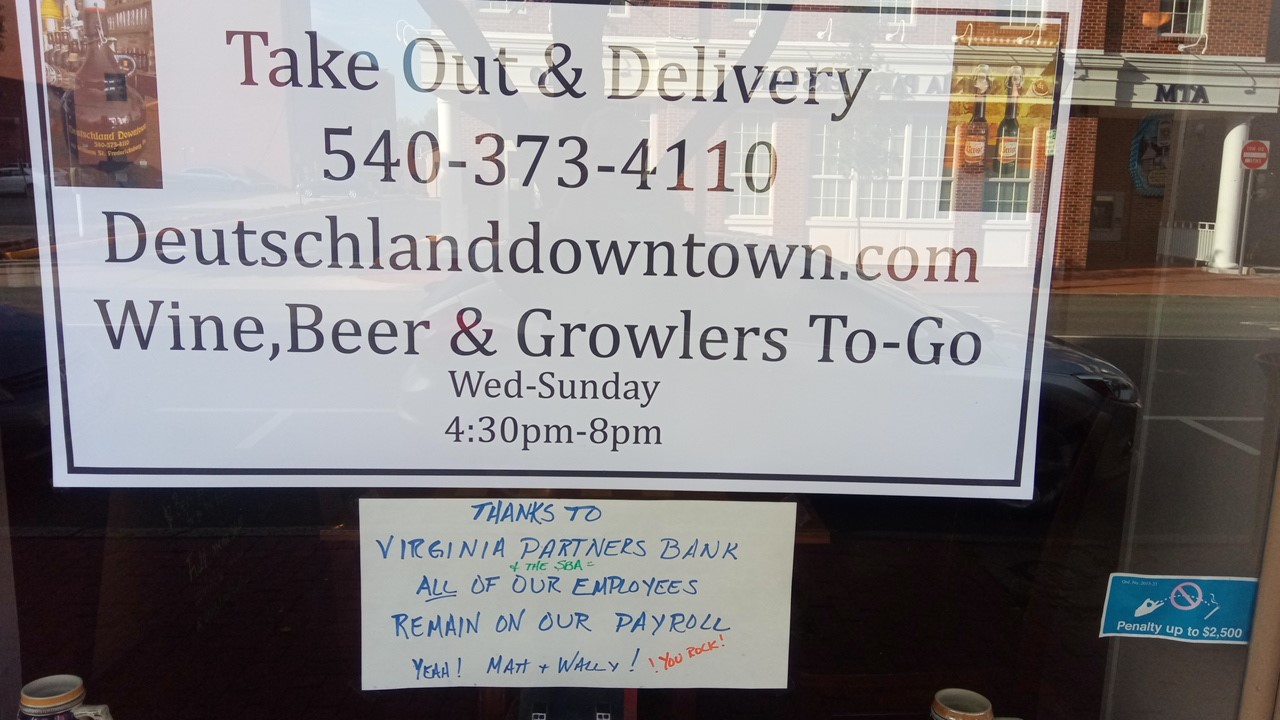 Take Out & Delivery
540-373-4110
Deutschlanddowntown.com
Wine,Beer & Growlers To-Go
Wed-Sunday
4:30pm-8pm
THANKS TO
VIRGINIA PARTNERS BANK
+ THE SBA =
ALL OF OUR EMPLOYEES
REMAIN ON OUR PAYROLL
YEAH! MATT + WALLY! !YOU ROCK!
Penalty up to $2,500